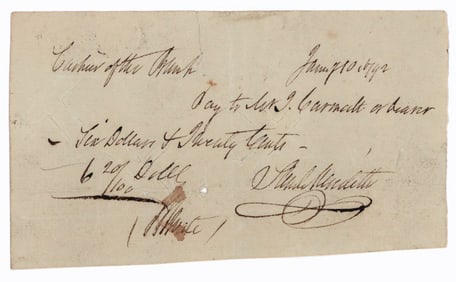 Cashier of the Bank Jany 10 1792
Pay to Mr J. Carmalt or bearer
- Six Dollars & Twenty Cents -
6 20/100 Dolls Saml Meredith